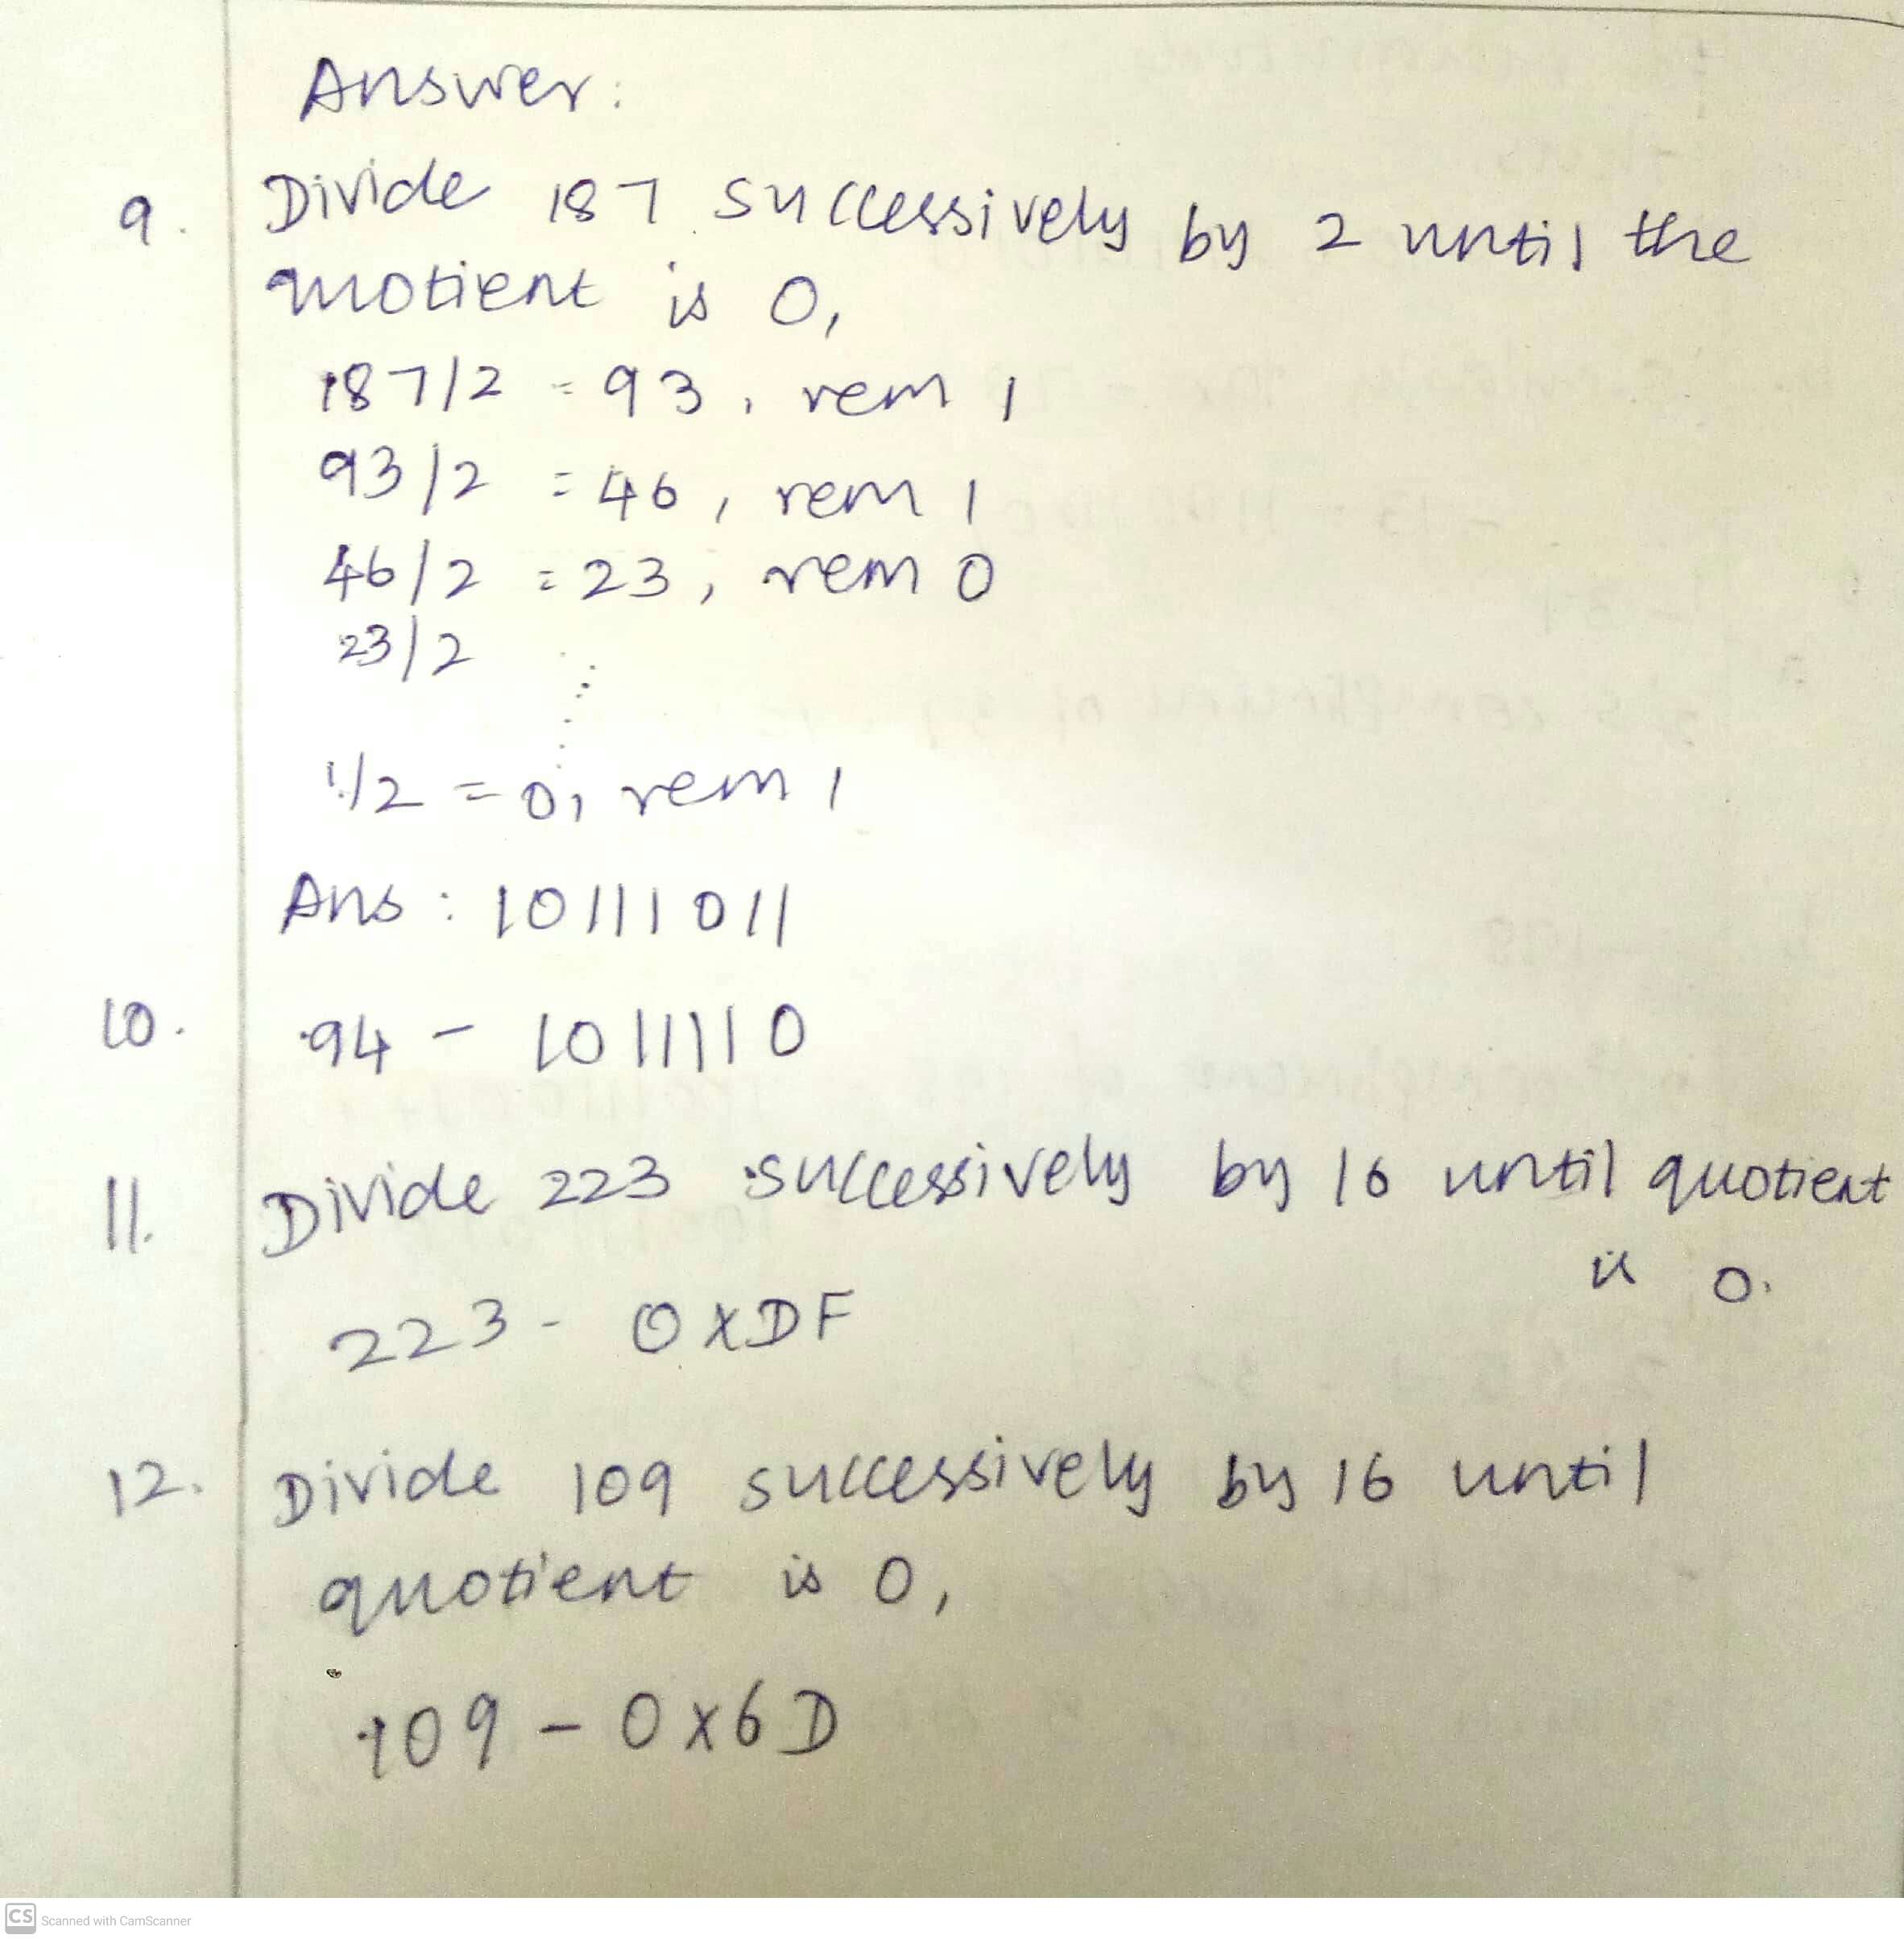 Answer:
9. Divide 187 successively by 2 until the
quotient is 0,
187/2 = 93, rem 1
93/2 = 46, rem 1
46/2 = 23, rem 0
23/2
1/2 = 0, rem 1
Ans : 10111011
10. 94 - 1011110
11. Divide 223 successively by 16 until quotient
is 0.
223 - 0XDF
12. Divide 109 successively by 16 until
quotient is 0,
109 - 0x6D
CS Scanned with CamScanner